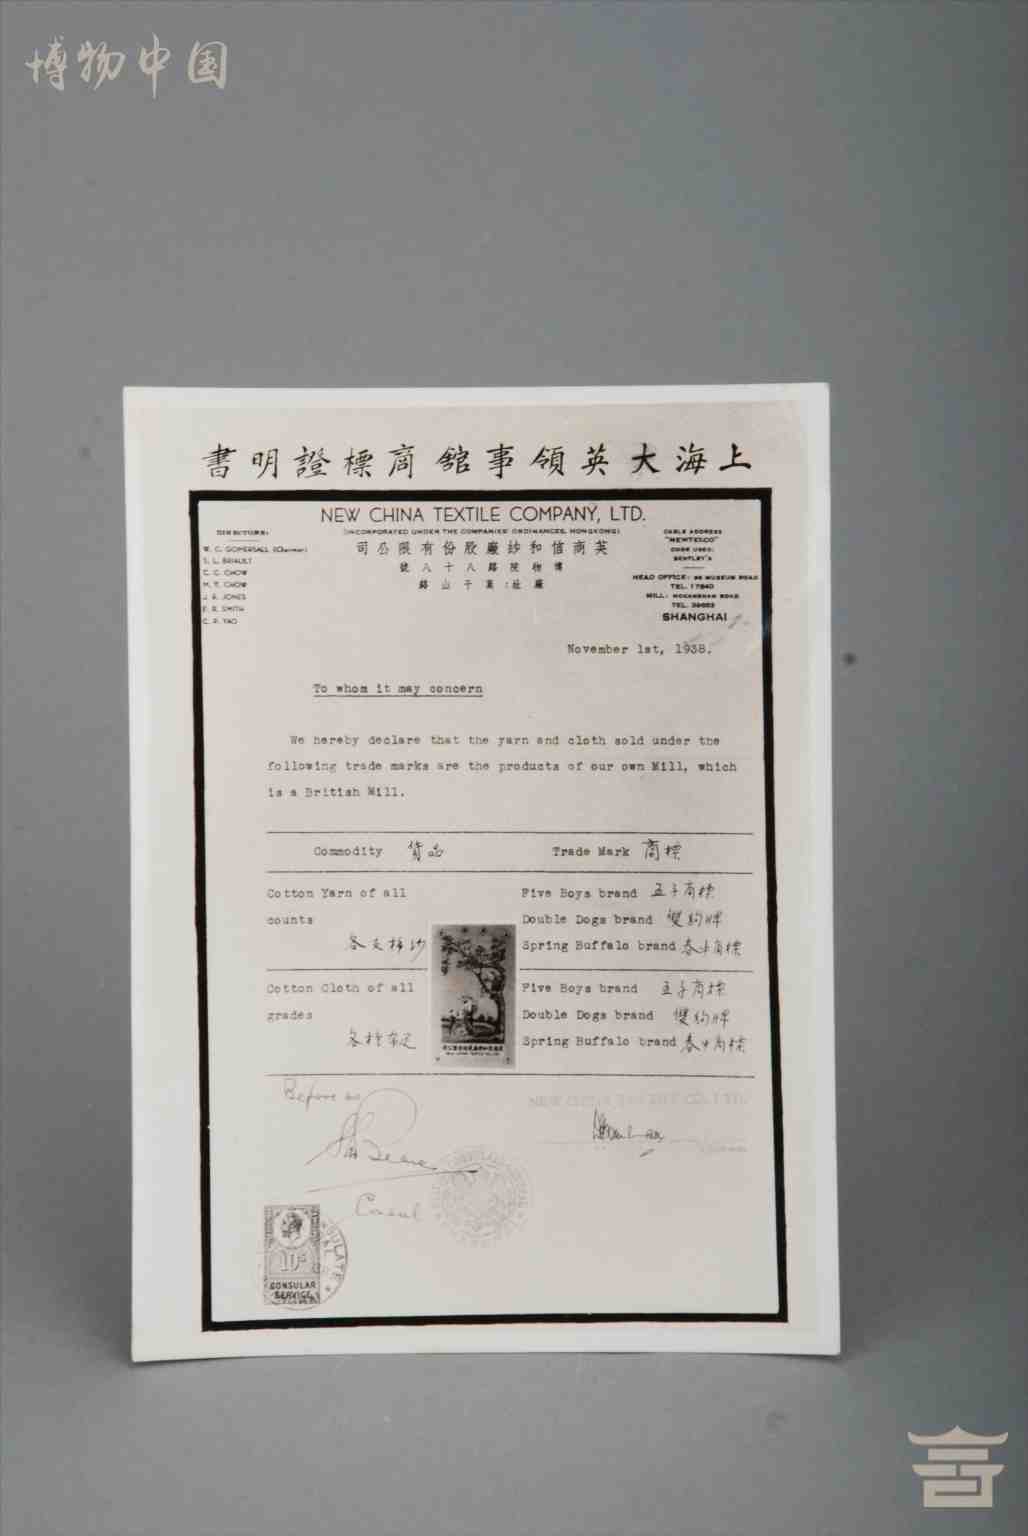 博物中国
書明證標商館事領英大海上
NEW CHINA TEXTILE COMPANY, LTD.
(INCORPORATED UNDER THE COMPANIES' ORDINANCES, HONGKONG)
司公限有份股廠紗和信商英
號八十八路院物博
路山干莫:址廠
DIRECTORS:
W. C. GOMERSALL (Chairman)
S. L. BRIAULT
C. C. CHOW
M. Y. CHOW
J. A. JONES
E. R. SMITH
C. P. YAO
CABLE ADDRESS
"NEWTEXCO"
CODE USED:
BENTLEY'S
HEAD OFFICE: 88 MUSEUM ROAD
TEL. 17840
MILL: MOKANSHAN ROAD
TEL. 39653
SHANGHAI
November 1st, 1938.
To whom it may concern
We hereby declare that the yarn and cloth sold under the
following trade marks are the products of our own Mill, which
is a British Mill.
Commodity 貨品 Trade Mark 商標
Cotton Yarn of all
counts
各支棉紗
Five Boys brand 五子商標
Double Dogs brand 雙狗牌
Spring Buffalo brand 春牛商標
Cotton Cloth of all
grades
各種布疋
Five Boys brand 五子商標
Double Dogs brand 雙狗牌
Spring Buffalo brand 春牛商標
Before me
NEW CHINA TEXTILE CO., LTD.
Consul
10s
CONSULAR
SERVICE